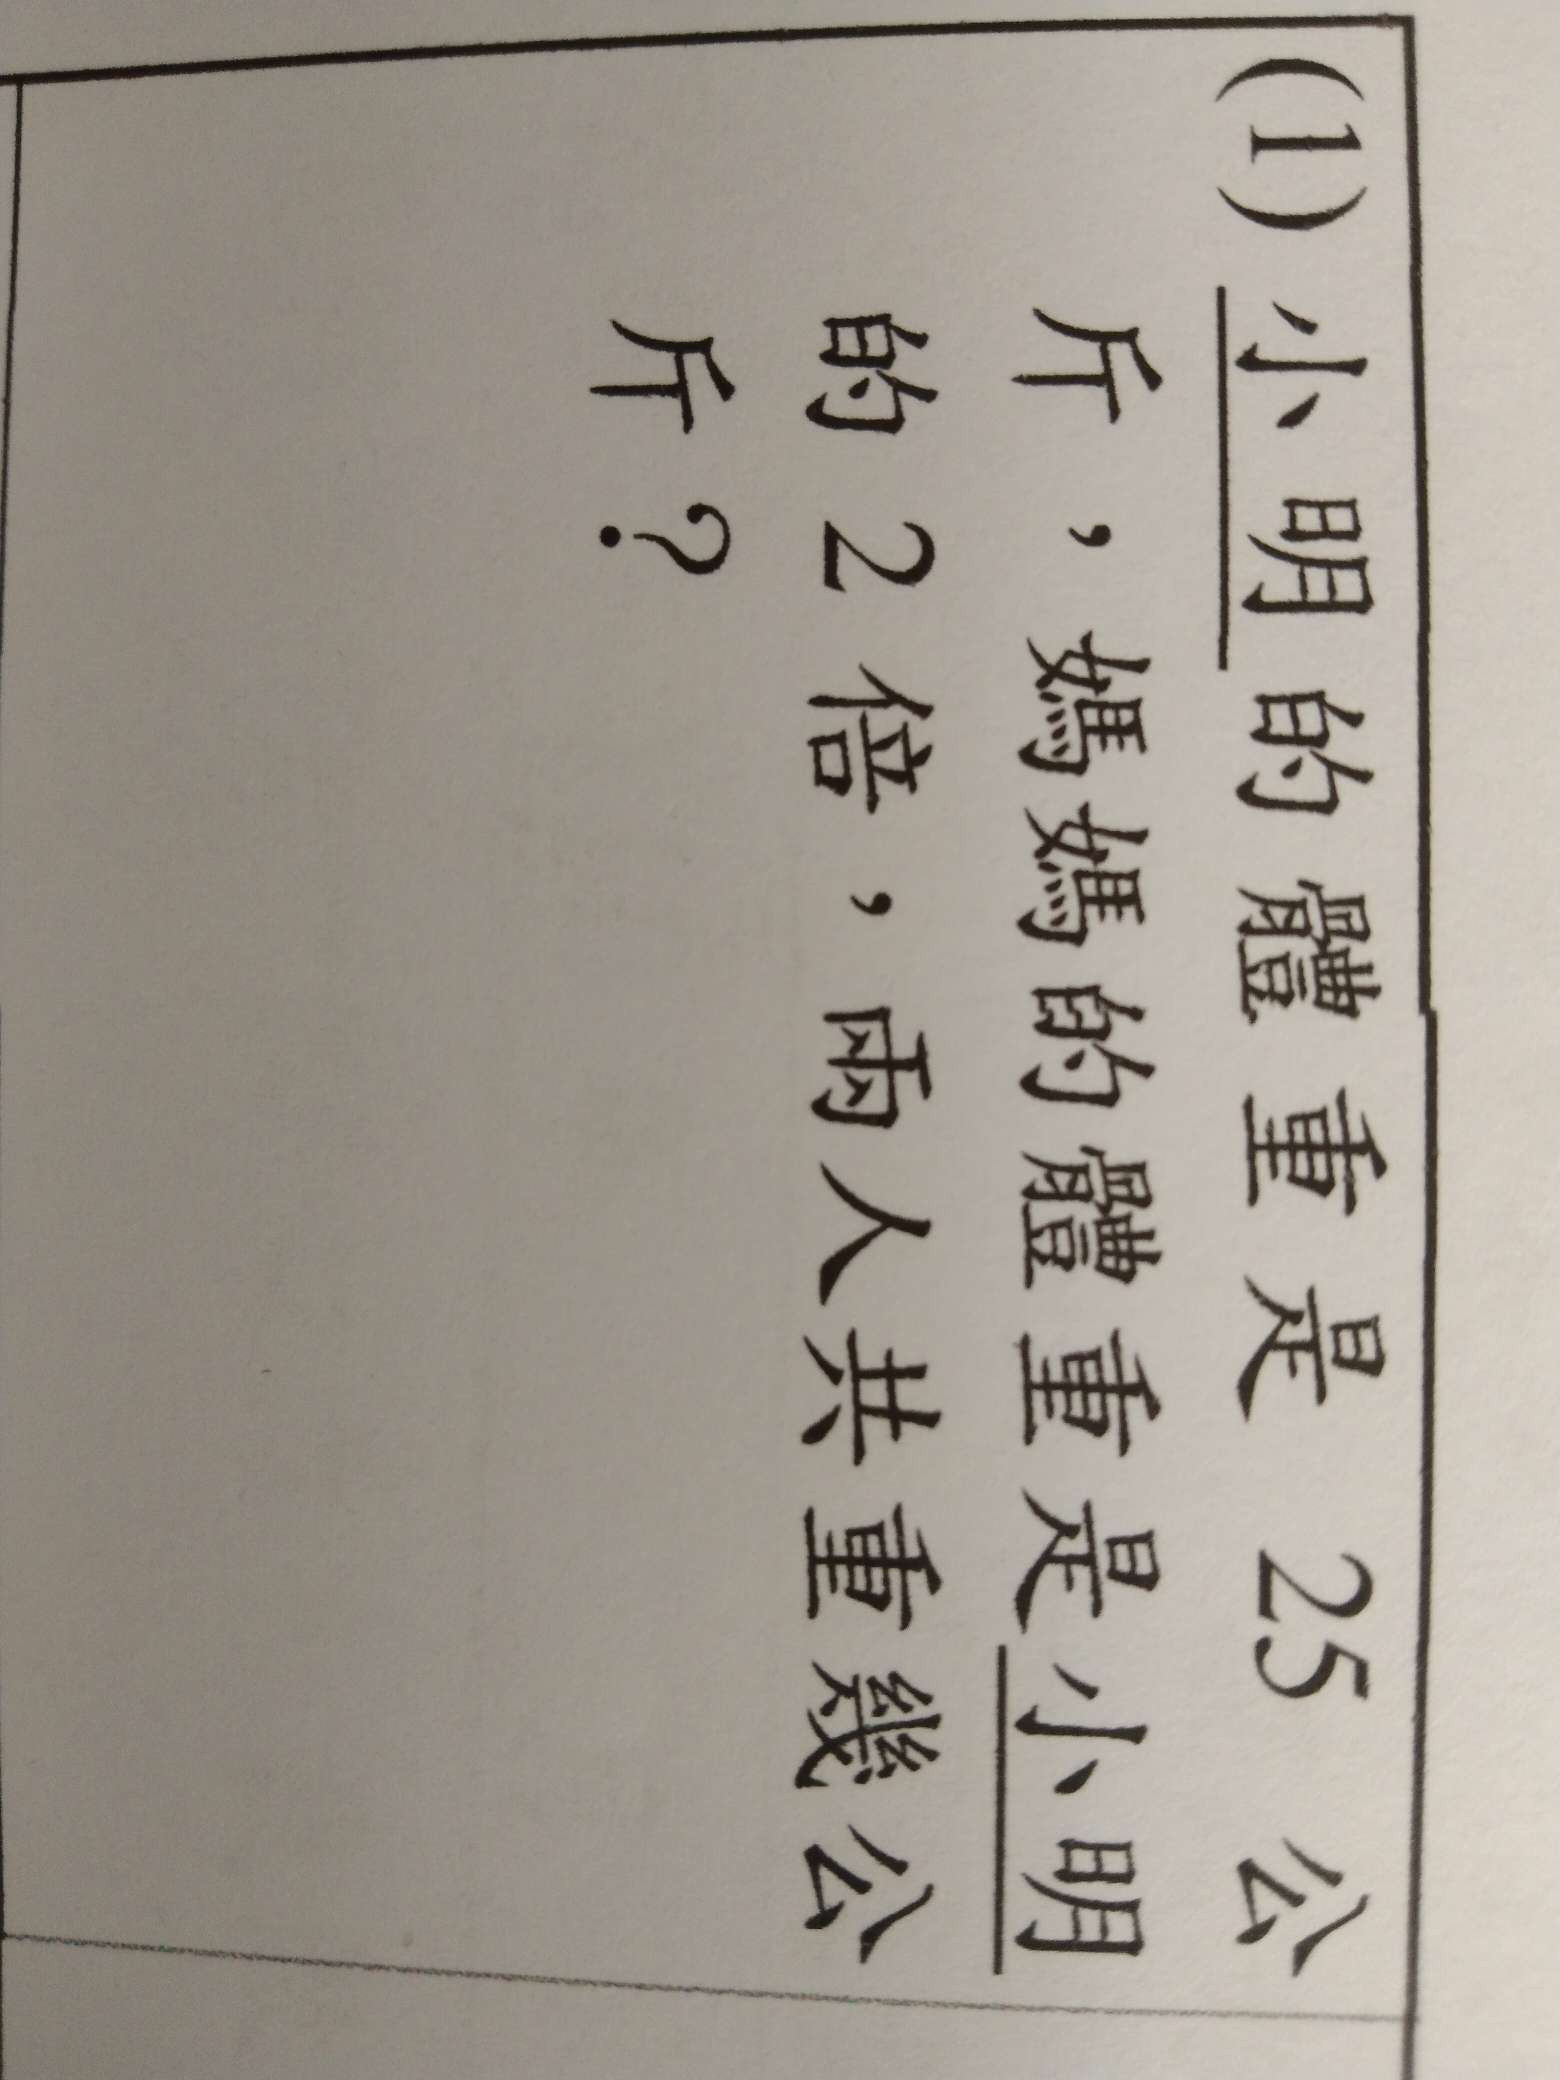 (1)小明的體重是 25 公
斤，媽媽的體重是小明
的2倍，兩人共重幾公
斤？